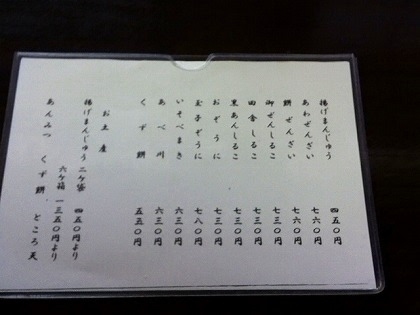 揚げまんじゅう 四五〇円
あわぜんざい 七六〇円
餅ぜんざい 七六〇円
御ぜんしるこ 七三〇円
田舎しるこ 七三〇円
栗あんしるこ 七三〇円
おぞうに 七三〇円
玉子ぞうに 七八〇円
いそべまき 六三〇円
あべ川 六三〇円
くず餅 五五〇円
お土産
揚げまんじゅう 二ケ袋 四五〇円より
六ケ箱 一三五〇円より
あんみつ くず餅 ところ天